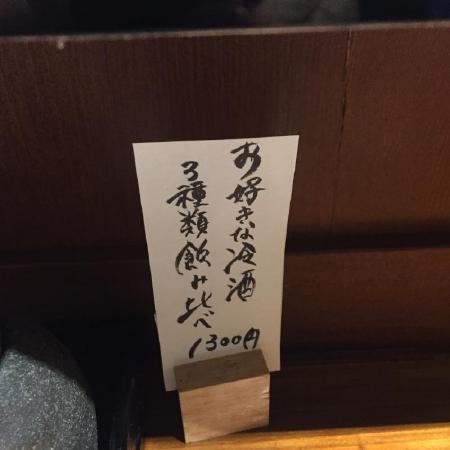 お好きな冷酒
3種類飲み比べ
1300円